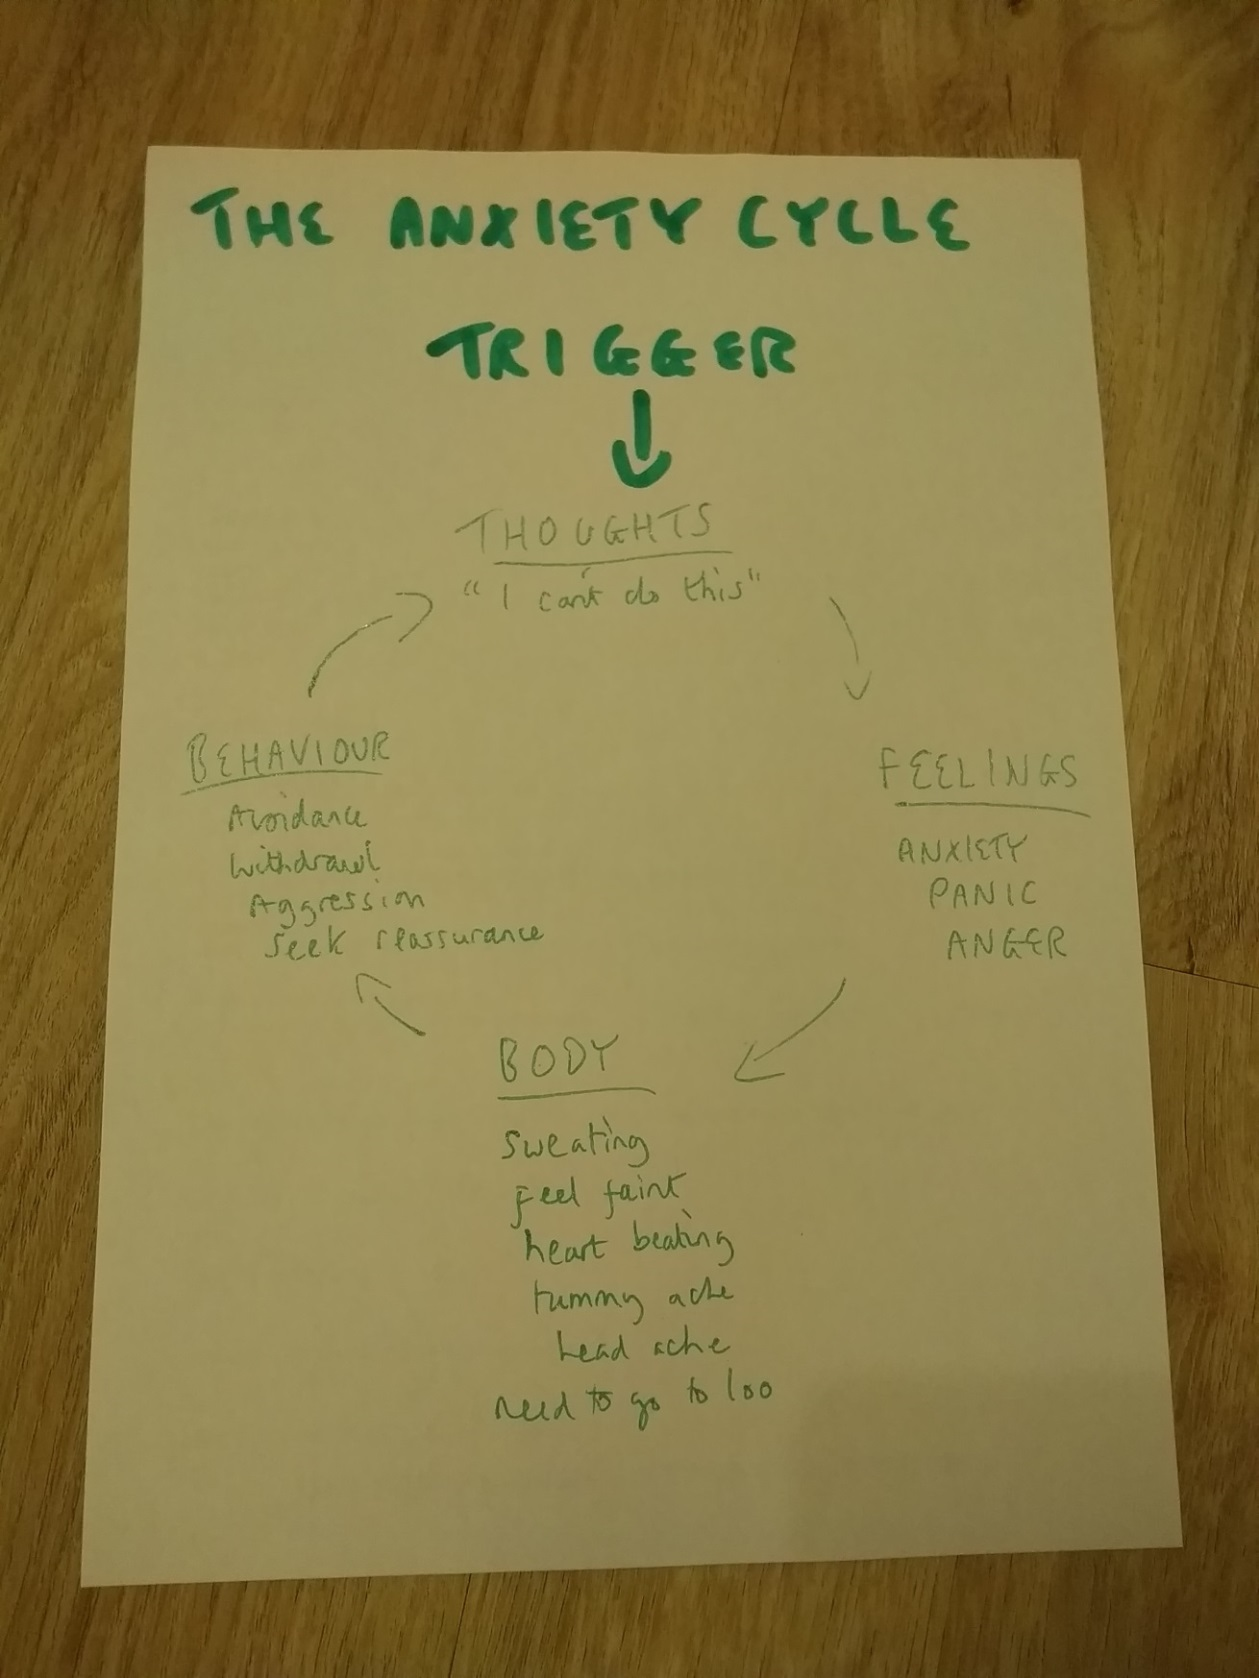 THE ANXIETY CYCLE
TRIGGER
THOUGHTS
"I can't do this"
FEELINGS
ANXIETY
PANIC
ANGER
BODY
Sweating
Feel faint
heart beating
tummy ache
head ache
need to go to loo
BEHAVIOUR
Avoidance
Withdrawl
Aggression
Seek reassurance